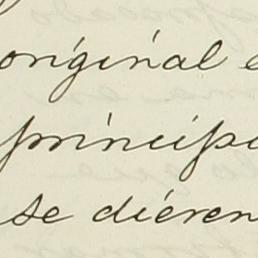 original e
principi
se diéren